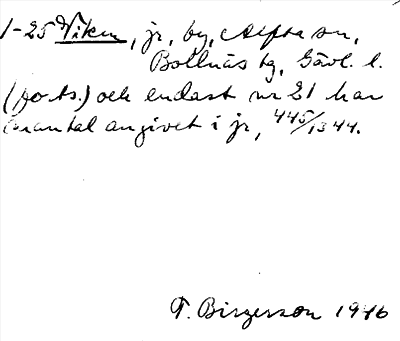 1-25 Viken, jr, by, Alfta sn,
Bollnäs tg, Gävl. l.
(forts.) och endast nr 21 har
mantal angivet i jr, 445/1344.
F. Birgersson 1946